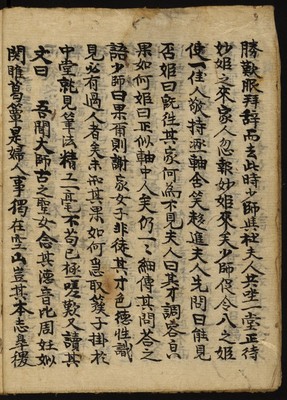 勝歎服拜辞而去此時少師與杜夫人共坐一堂正待
妙姬之來家人忽報妙姬來矣少師促令入之姬
使一佳人敬持逐軸含笑趍進夫人先問曰能見
否姬曰旣徃其家何爲不見夫人曰其才調容皃
果如何姬曰正似軸中人矣仍一一細傳其問答之
語少師曰果爾則謝家女子非徒其才色德性識
見必有過人者矣未知其果如何急取簇子掛於
中堂就見筆法精工毫不苟已極嗟歎又讀其
文曰 吾聞大師古之聖女合其德音比周妊姒
関雎葛蕈是婦人事獨在空山豈其本志皐稷